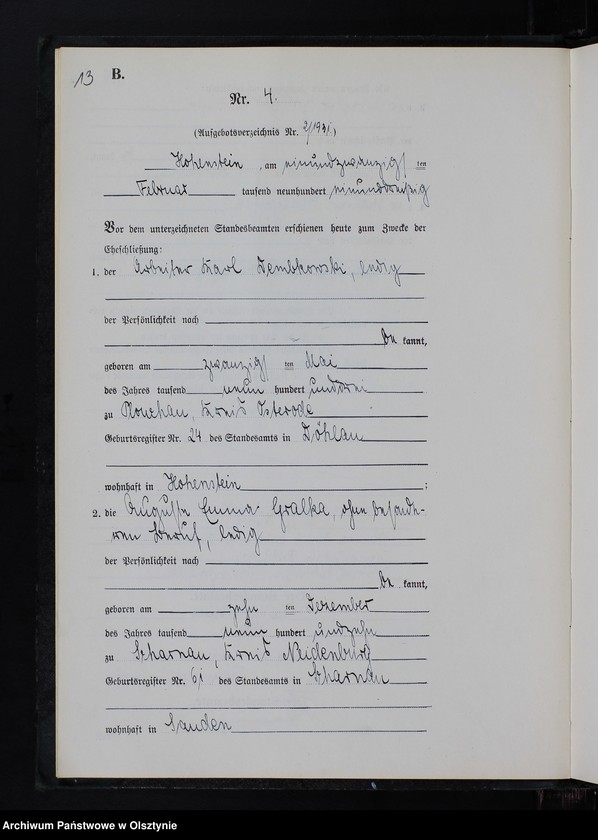 13 B.
Nr. 4.
(Aufgebotsverzeichnis Nr. 2/1931.)
Hohenstein, am einundzwanzigsten
Februar tausend neunhundert einunddreißig
Vor dem unterzeichneten Standesbeamten erschienen heute zum Zwecke der
Eheschließung:
1. der Arbeiter Karl Dembkowski, ledig
der Persönlichkeit nach
be kannt,
geboren am zwanzigsten Mai
des Jahres tausend neun hundert unddrei
zu Plonchau, Kreis Osterode
Geburtsregister Nr. 24 des Standesamts in Döhlau
wohnhaft in Hohenstein;
2. die Auguste Emma Gralka, ohne besonde-
ren Beruf, ledig
der Persönlichkeit nach
be kannt,
geboren am zehn ten Dezember
des Jahres tausend neun hundert undzehn
zu Scharnau, Kreis Neidenburg
Geburtsregister Nr. 61 des Standesamts in Scharnau
wohnhaft in Sauden
Archiwum Państwowe w Olsztynie